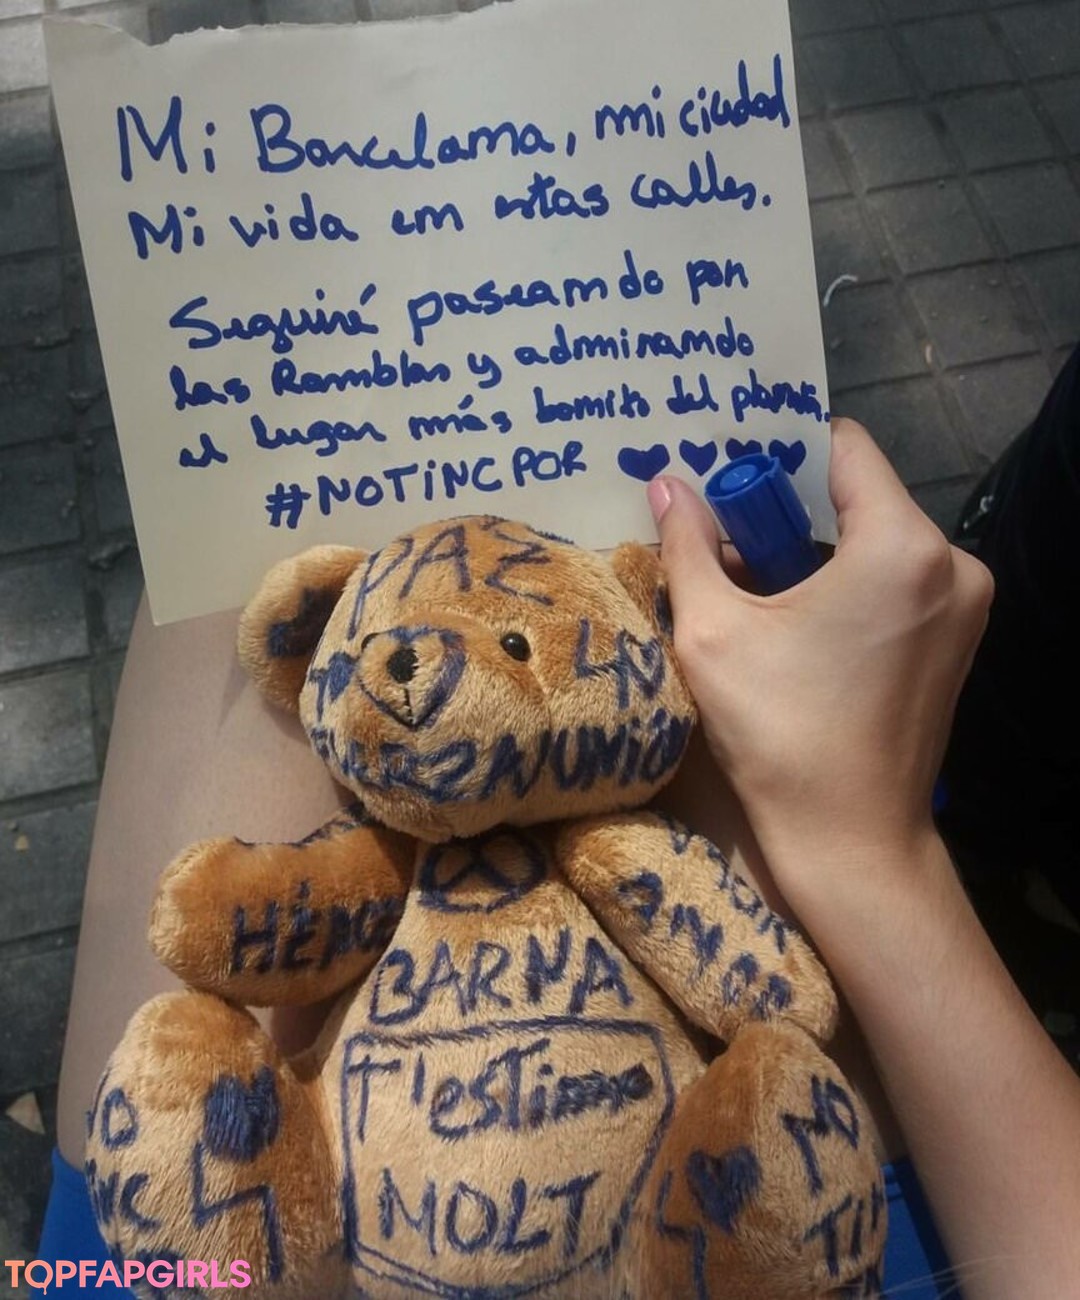 Mi Barcelona, mi ciudad
Mi vida en estas calles.
Seguiré paseando por
las Ramblas y admirando
el lugar más bonito del planeta.
#NOTINCPOR
PAZ
UNIÓN
BARNA
T'estimo
MOLT
NO
NO
TOPFAPGIRLS